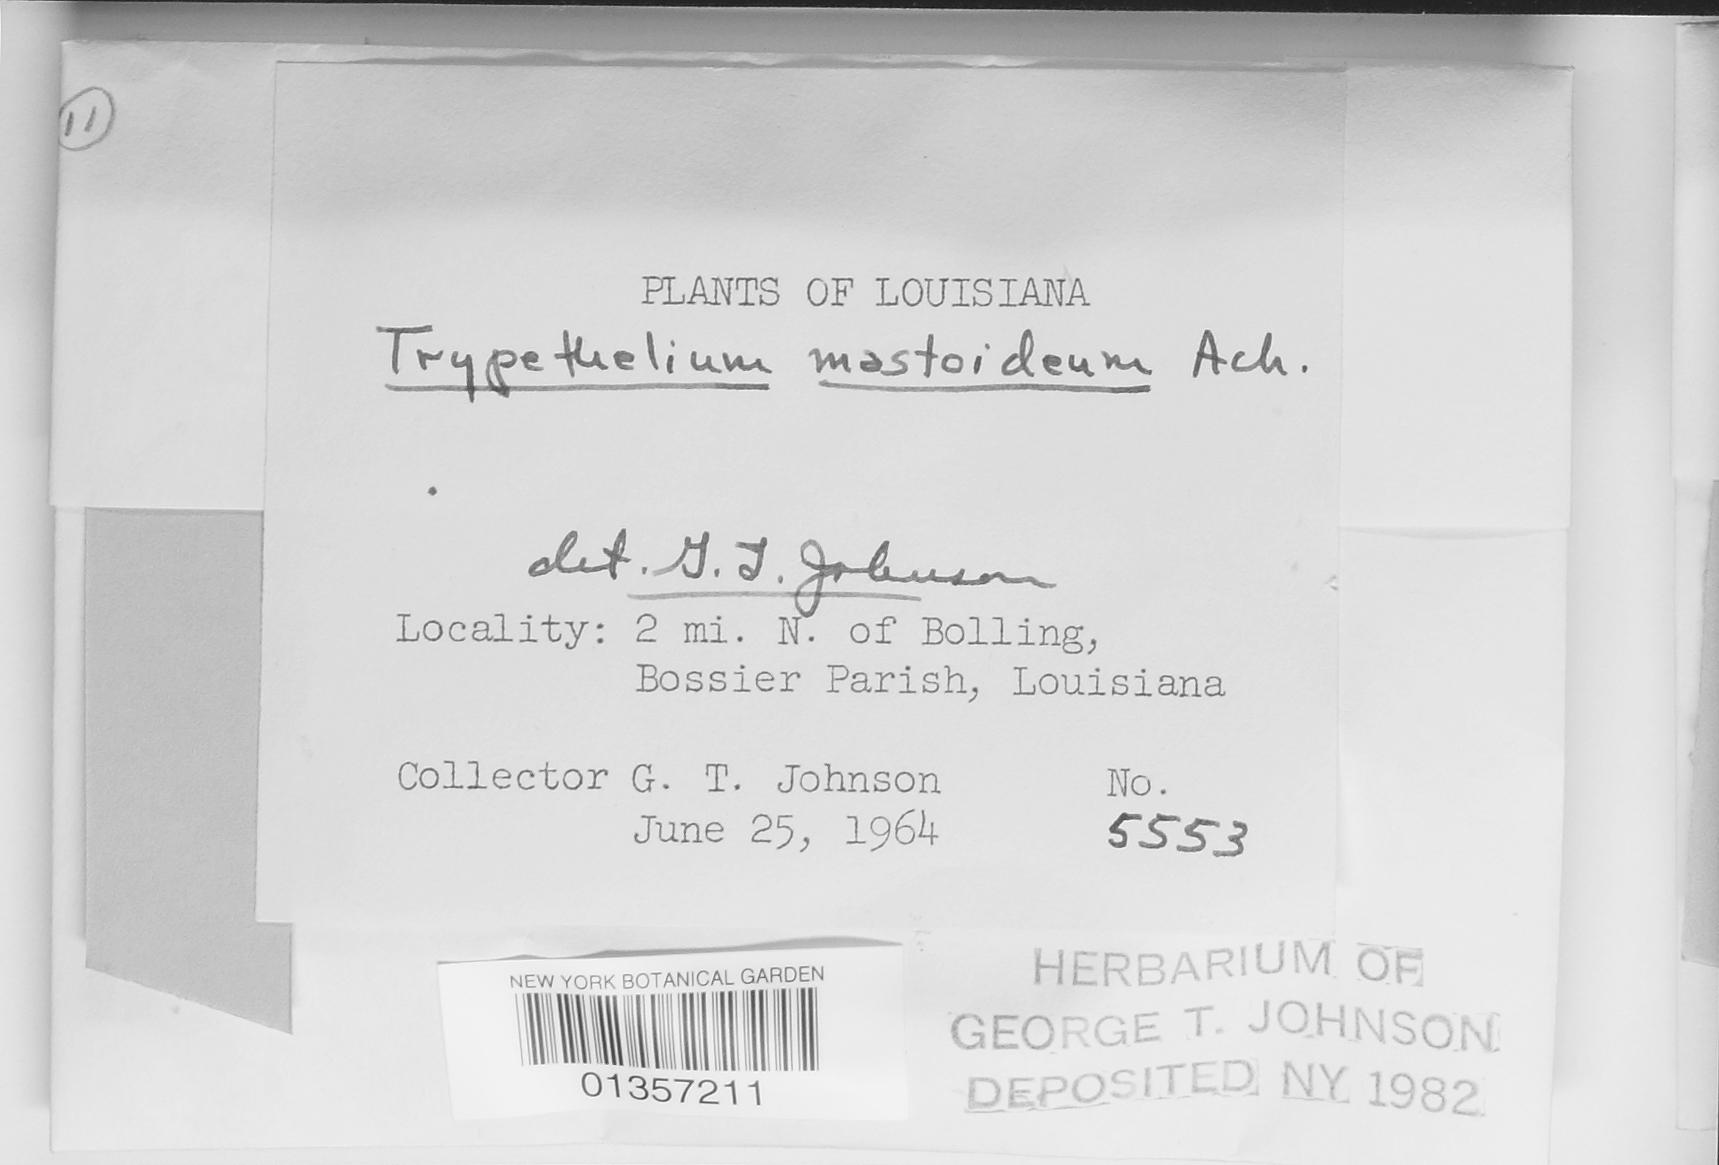 11
PLANTS OF LOUISIANA
Trypethelium mastoideum Ach.
det. G. T. Johnson
Locality: 2 mi. N. of Bolling,
Bossier Parish, Louisiana
Collector G. T. Johnson No.
June 25, 1964 5553
NEW YORK BOTANICAL GARDEN
01357211
HERBARIUM OF
GEORGE T. JOHNSON
DEPOSITED NY 1982